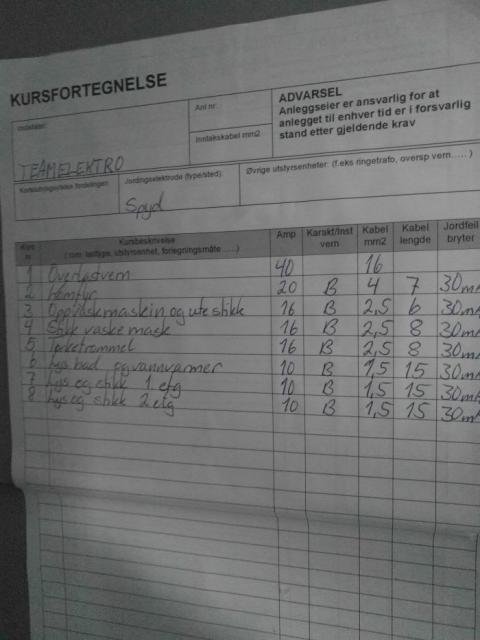 KURSFORTEGNELSE
Anl nr.
ADVARSEL
Anleggseier er ansvarlig for at
anlegget til enhver tid er i forsvarlig
stand etter gjeldende krav
Inntakskabel mm2
TEAMELEKTRO
Jordingselektrode (type/sted):
Spyd
Øvrige utstyrsenheter: (f.eks ringetrafo, oversp vern.....)
Kurs nr Kursbeskrivelse ( rom, lasttype, utstyrsenhet, forlegningsmåte .....) Amp Karakt/Inst vern Kabel mm2 Kabel lengde Jordfeil bryter
1 Overlastvern 40 16
2 Komfyr 20 B 4 7 30mA
3 Oppvaskmaskin og ute stikk 16 B 2,5 6 30mA
4 Stikk vaskemask 16 B 2,5 8 30mA
5 Tørketrommel 16 B 2,5 8 30mA
6 Lys bad og vannvarmer 10 B 1,5 15 30mA
7 Lys og stikk 1 etg 10 B 1,5 15 30mA
8 Lys og stikk 2 etg 10 B 1,5 15 30mA